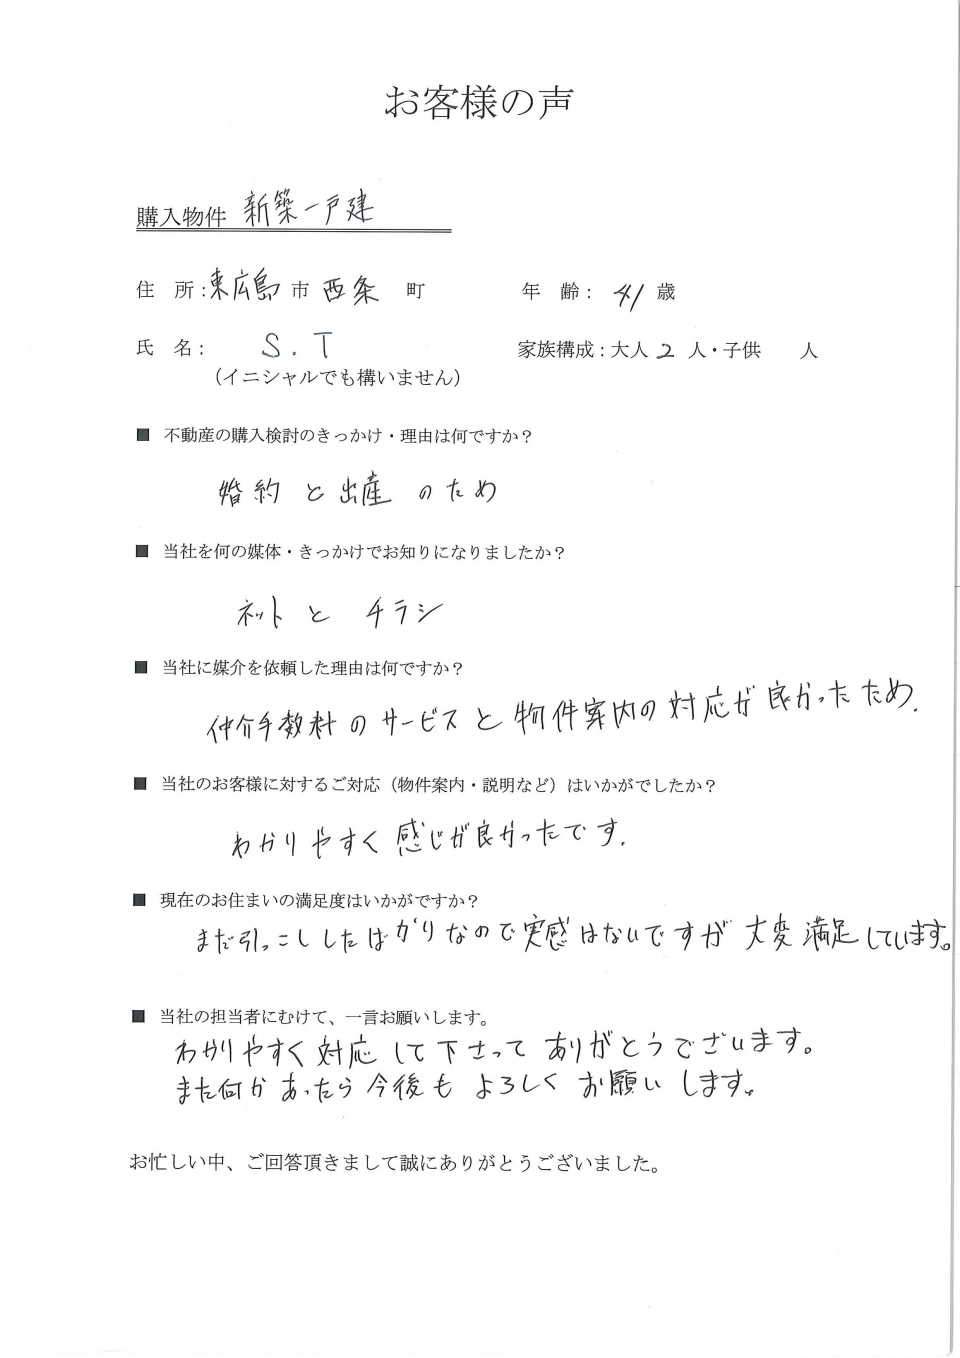 お客様の声
購入物件 新築一戸建
住 所：東広島市西条 町 年 齢： 41 歳
氏 名： S.T 家族構成：大人 2 人・子供 人
（イニシャルでも構いません）
■ 不動産の購入検討のきっかけ・理由は何ですか？
婚約と出産のため
■ 当社を何の媒体・きっかけでお知りになりましたか？
ネットと チラシ
■ 当社に媒介を依頼した理由は何ですか？
仲介手数料のサービスと物件案内の対応が良かったため.
■ 当社のお客様に対するご対応（物件案内・説明など）はいかがでしたか？
わかりやすく感じが良かったです.
■ 現在のお住まいの満足度はいかがですか？
まだ引っこししたばかりなので実感はないですが大変満足しています。
■ 当社の担当者にむけて、一言お願いします。
わかりやすく対応して下さってありがとうございます。
また何かあったら今後もよろしくお願いします。
お忙しい中、ご回答頂きまして誠にありがとうございました。